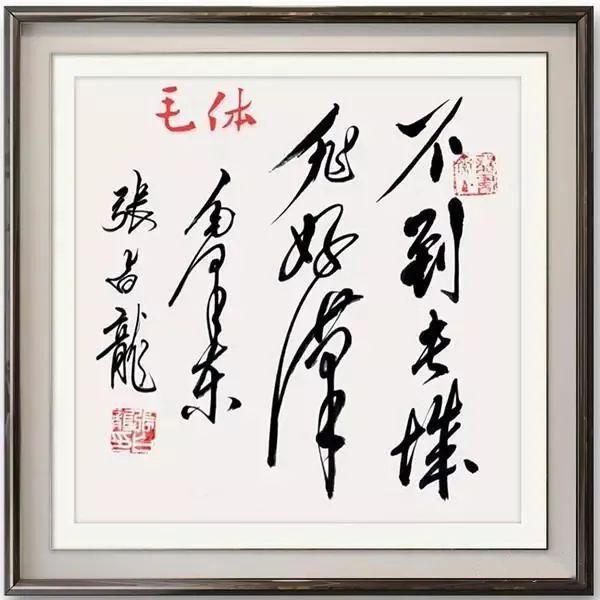 毛体
不到长城
非好漢
毛泽东
張占龍